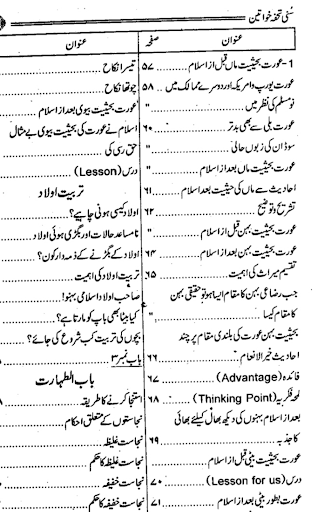 سنی تحفہ خواتین
عنوان صفحہ
1-عورت بحیثیت ماں قبل از اسلام ۵۷
عورت یورپ و امریکہ اور دوسرے ممالک میں ۵۸
نومسلم کی نظر میں "
عورت بلی سے بھی بدتر ۶۰
سوڈان کی زبوں حالی "
عورت بحیثیت ماں بعد از اسلام "
احادیث سے ماں کی حیثیت بعد اسلام ۶۱
تشریح و توضیح ۶۲
عورت بحیثیت بہن قبل از اسلام "
عورت بحیثیت بہن بعد از اسلام ۶۴
تقسیم میراث کی اہمیت ۶۵
جب رضاعی بہن کا مقام ایسا ہو تو حقیقی بہن
کا مقام کیسا "
بحیثیت بہن عورت کی بلندی مقام پر چند
احادیث خیر الانعام ۶۶
فائدہ (Advantage) ۶۷
لمحہ فکریہ (Thinking Point) ۶۸
بعد از اسلام بہنوں کی دیکھ بھال کیلئے بھائی
کا جذبہ ۶۹
عورت بحیثیت بیٹی قبل از اسلام
(Lesson for us) ۷۰
عورت بطور بیٹی بعد از اسلام ۷۱
عنوان
تیسرا نکاح
چوتھا نکاح
عورت بحیثیت بیوی بعد از اسلام
اسلام نے عورت کی بحیثیت بیوی بے مثال
حق رسی کی
درس (Lesson)
تربیت اولاد
اولاد کیسی ہونی چاہیے؟
نامساعد حالات اور بگڑی ہوئی اولاد
اولاد کے بگڑنے کے ذمہ دار کون؟
تربیت اولاد کی اہمیت
صاحب اولاد اسلامی بہنو!
کیا بیٹا بھی باپ کو مارتا ہے؟
بچوں کی تربیت کب شروع کی جائے؟
باب نمبر ۳
باب الطہارت
استنجا کرنے کا طریقہ
نجاستوں کے متعلق احکام
نجاست غلیظہ
نجاست غلیظہ کا حکم
نجاست خفیفہ
نجاست خفیفہ کا حکم